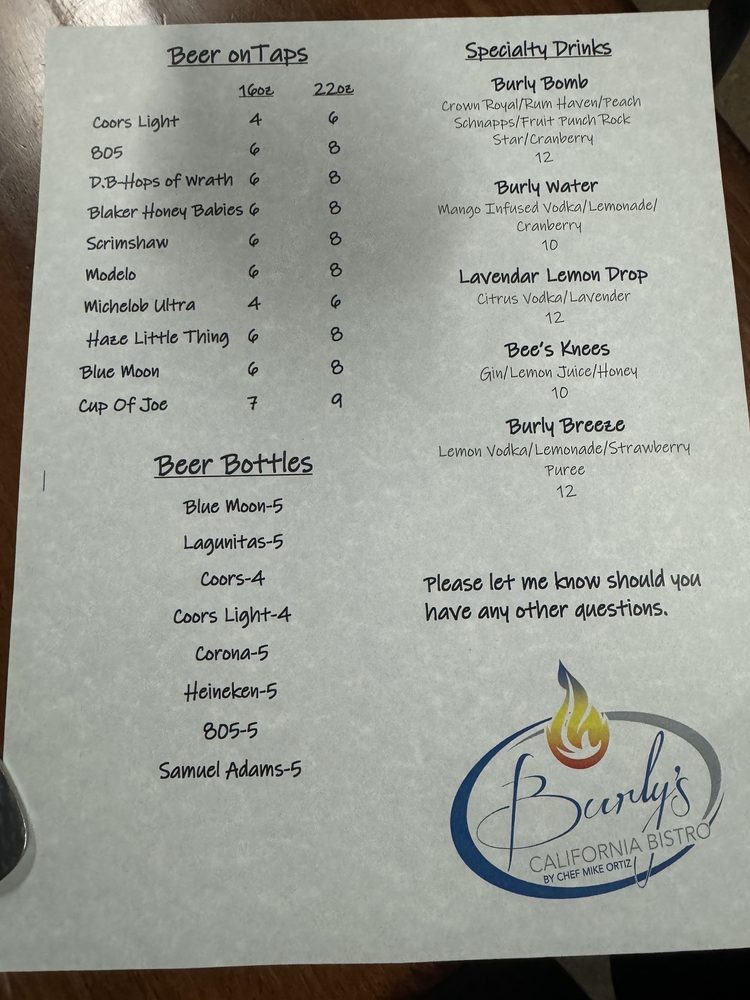 Beer onTaps
16oz 22oz
Coors Light 4 6
805 6 8
D.B-Hops of Wrath 6 8
Blaker Honey Babies 6 8
Scrimshaw 6 8
Modelo 6 8
Michelob Ultra 4 6
Haze Little Thing 6 8
Blue Moon 6 8
Cup Of Joe 7 9
Beer Bottles
Blue Moon-5
Lagunitas-5
Coors-4
Coors Light-4
Corona-5
Heineken-5
805-5
Samuel Adams-5
Specialty Drinks
Burly Bomb
Crown Royal/Rum Haven/Peach
Schnapps/Fruit Punch Rock
Star/Cranberry
12
Burly Water
Mango Infused Vodka/Lemonade/
Cranberry
10
Lavendar Lemon Drop
Citrus Vodka/Lavender
12
Bee's Knees
Gin/Lemon Juice/Honey
10
Burly Breeze
Lemon Vodka/Lemonade/Strawberry
Puree
12
Please let me know should you
have any other questions.
Burly's
CALIFORNIA BISTRO
BY CHEF MIKE ORTIZ